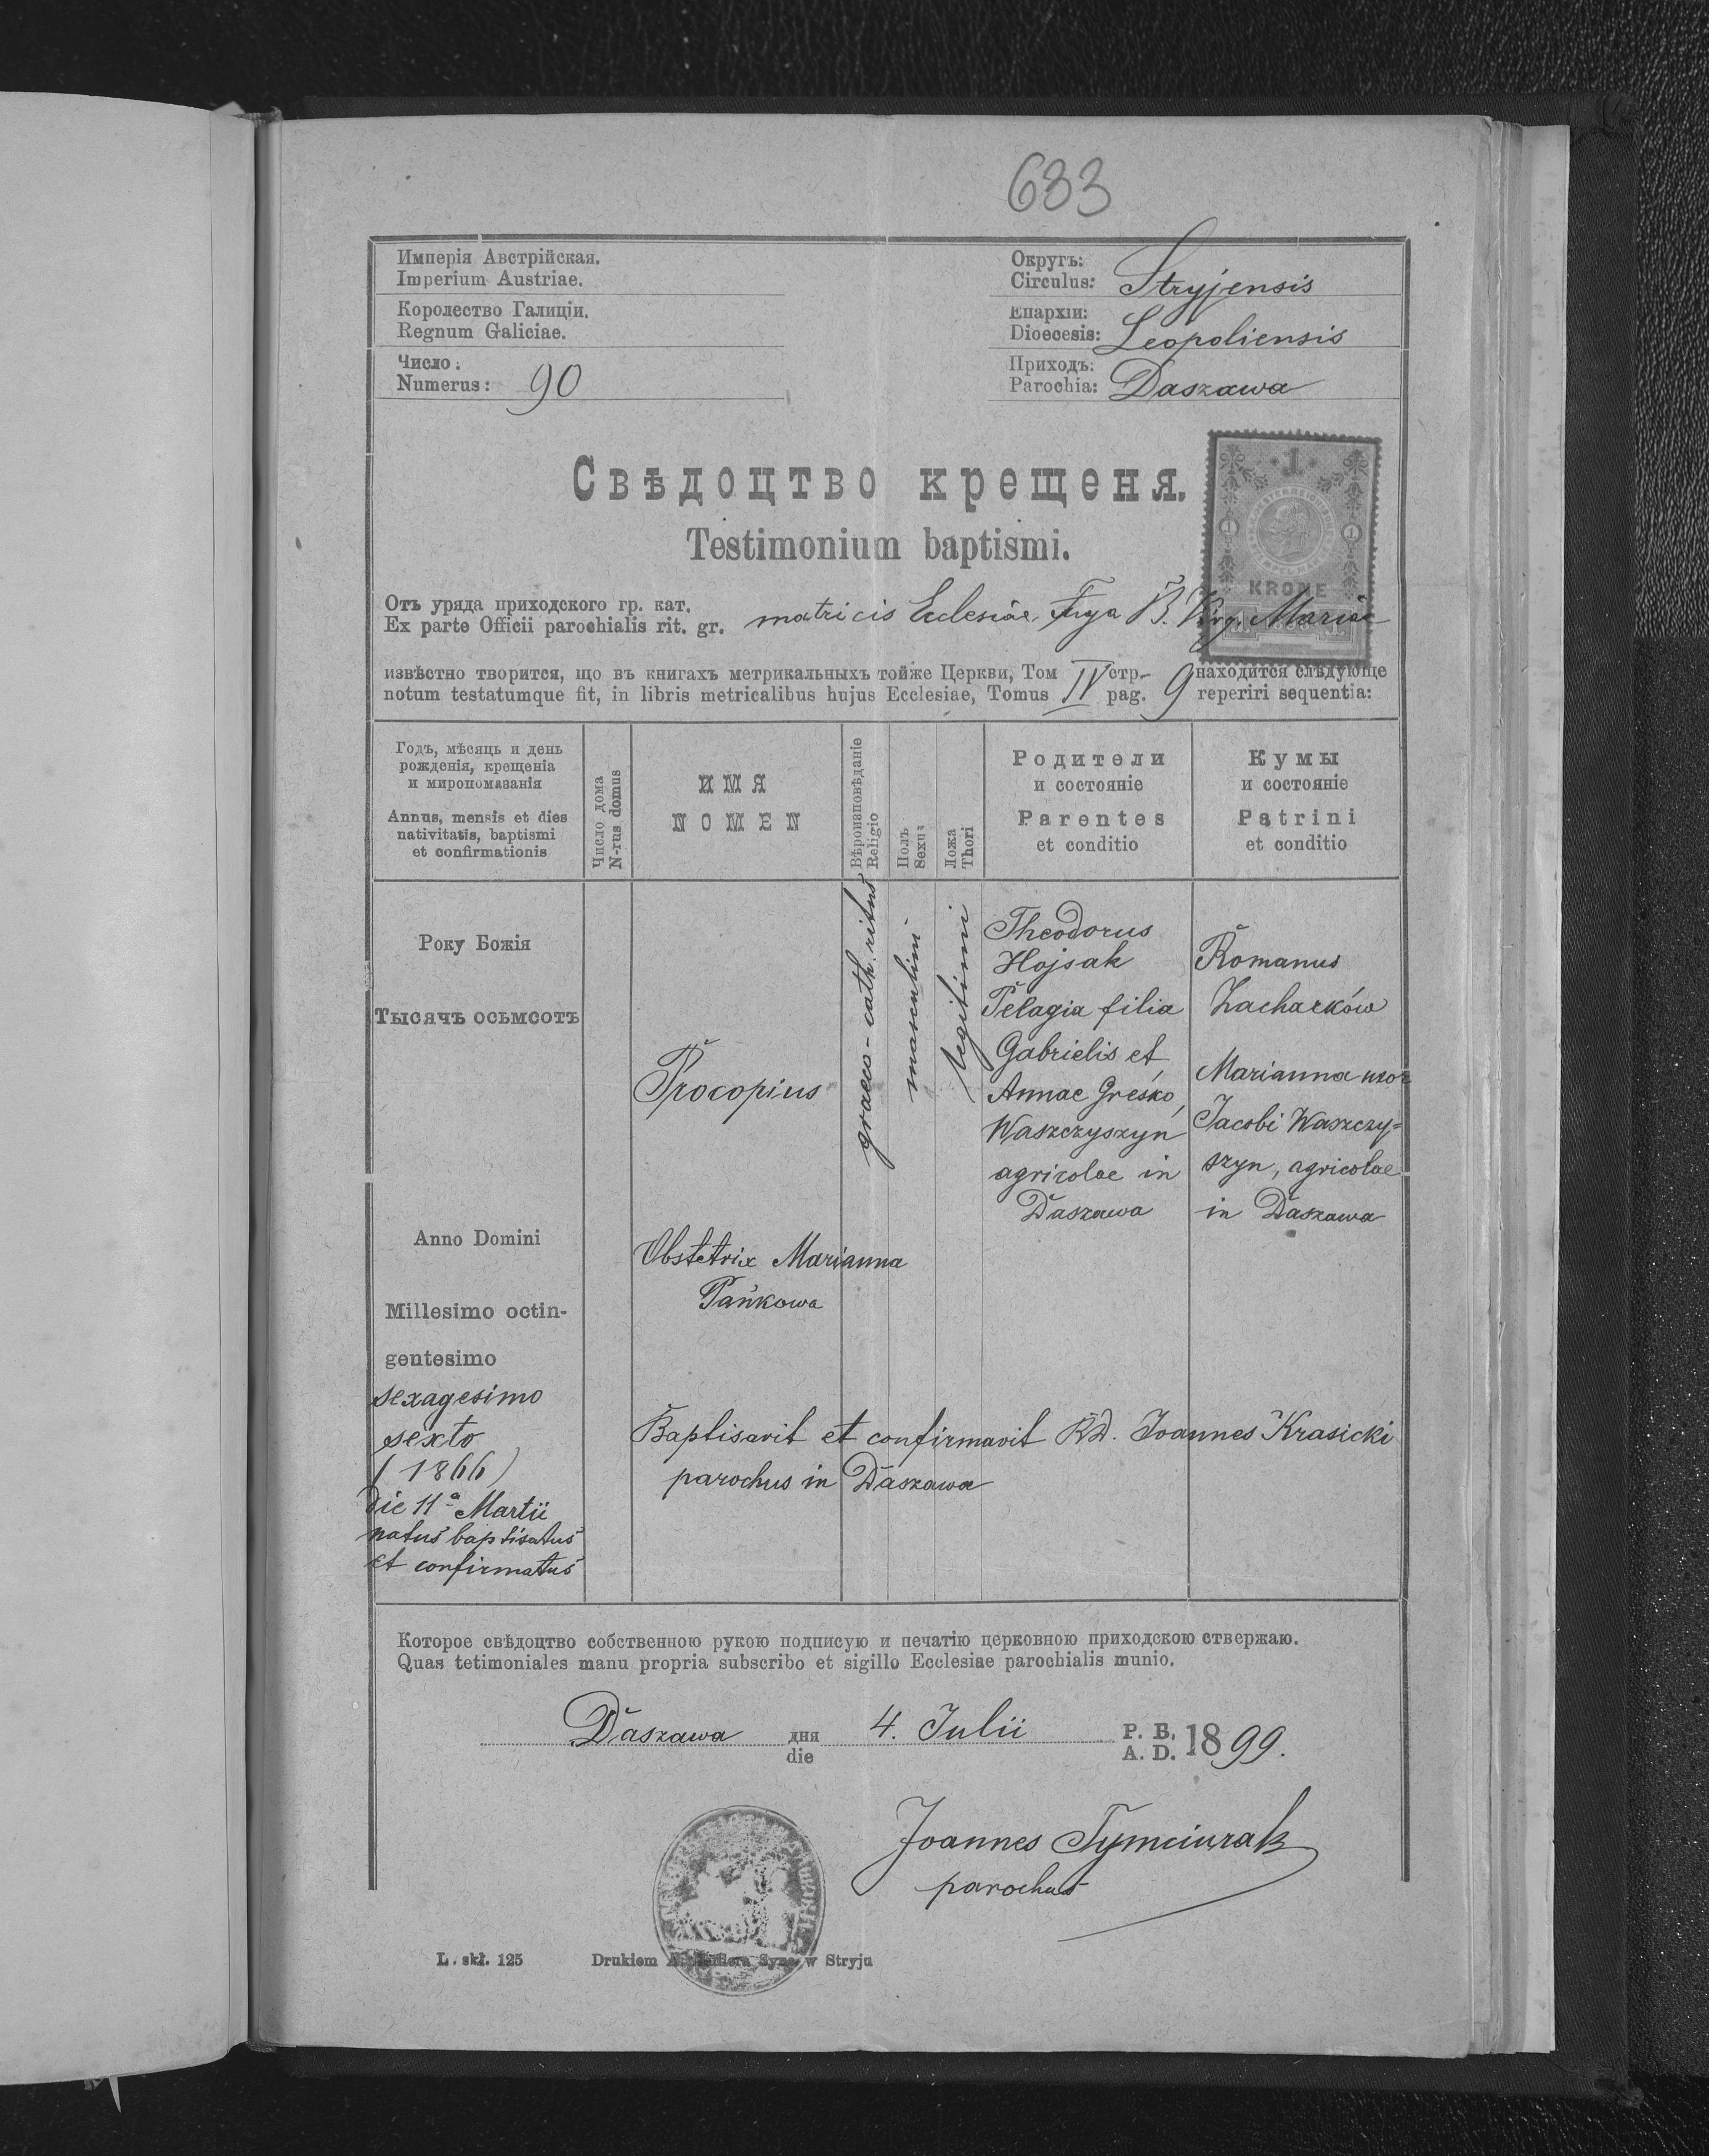 633
Имперія Австрійская.
Imperium Austriae.
Королество Галиціи.
Regnum Galiciae.
Число:
Numerus: 90
Округъ:
Circulus: Stryjensis
Епархіи:
Dioecesis: Leopoliensis
Приходъ:
Parochia: Daszawa
Свѣдоцтво крещеня.
Testimonium baptismi.
1
KRONE
Отъ уряда приходского гр. кат.
Ex parte Officii parochialis rit. gr. matricis Ecclesiae, B. Virg. Mariae
извѣстно творится, що въ книгахъ метрикальныхъ тойже Церкви, Том IV стр. 9 находится слѣдующе
notum testatumque fit, in libris metricalibus hujus Ecclesiae, Tomus pag. reperiri sequentia:
Годъ, мѣсяць и день
рожденія, крещенія
и миропомазанія
Annus, mensis et dies
nativitatis, baptismi
et confirmationis
Число дома
N-rus domus
ИМЯ
NOMEN
Вѣроисповѣданіе
Religio
Полъ
Sexus
Ложа
Thori
Родители
и состояніе
Parentes
et conditio
Кумы
и состояніе
Patrini
et conditio
Року Божія
Тысячъ осьмсотъ
Anno Domini
Millesimo octin-
gentesimo
sexagesimo
sexto
(1866)
die 11ª Martii
natus baptisatus
et confirmatus
Procopius
Obstetrix Marianna
Pańkowa
graeco-cath. ritus
masculini
legitimi
Theodorus
Hojsak
Pelagia filia
Gabrielis et
Annae Greśko,
Waszczyszyn
agricolae in
Daszawa
Romanus
Zacharków
Marianna uxor
Jacobi Waszczy=
szyn, agricolae
in Daszawa
Baptisavit et confirmavit RD. Joannes Krasicki
parochus in Daszawa
Которое свѣдоцтво собственною рукою подписую и печатію церковною приходскою ствержаю.
Quas tetimoniales manu propria subscribo et sigillo Ecclesiae parochialis munio.
Daszawa дня 4. Julii Р. Б. 1899.
die A. D.
Joannes Tymciurak
parochus
L. skł. 125 Drukiem Syna w Stryju